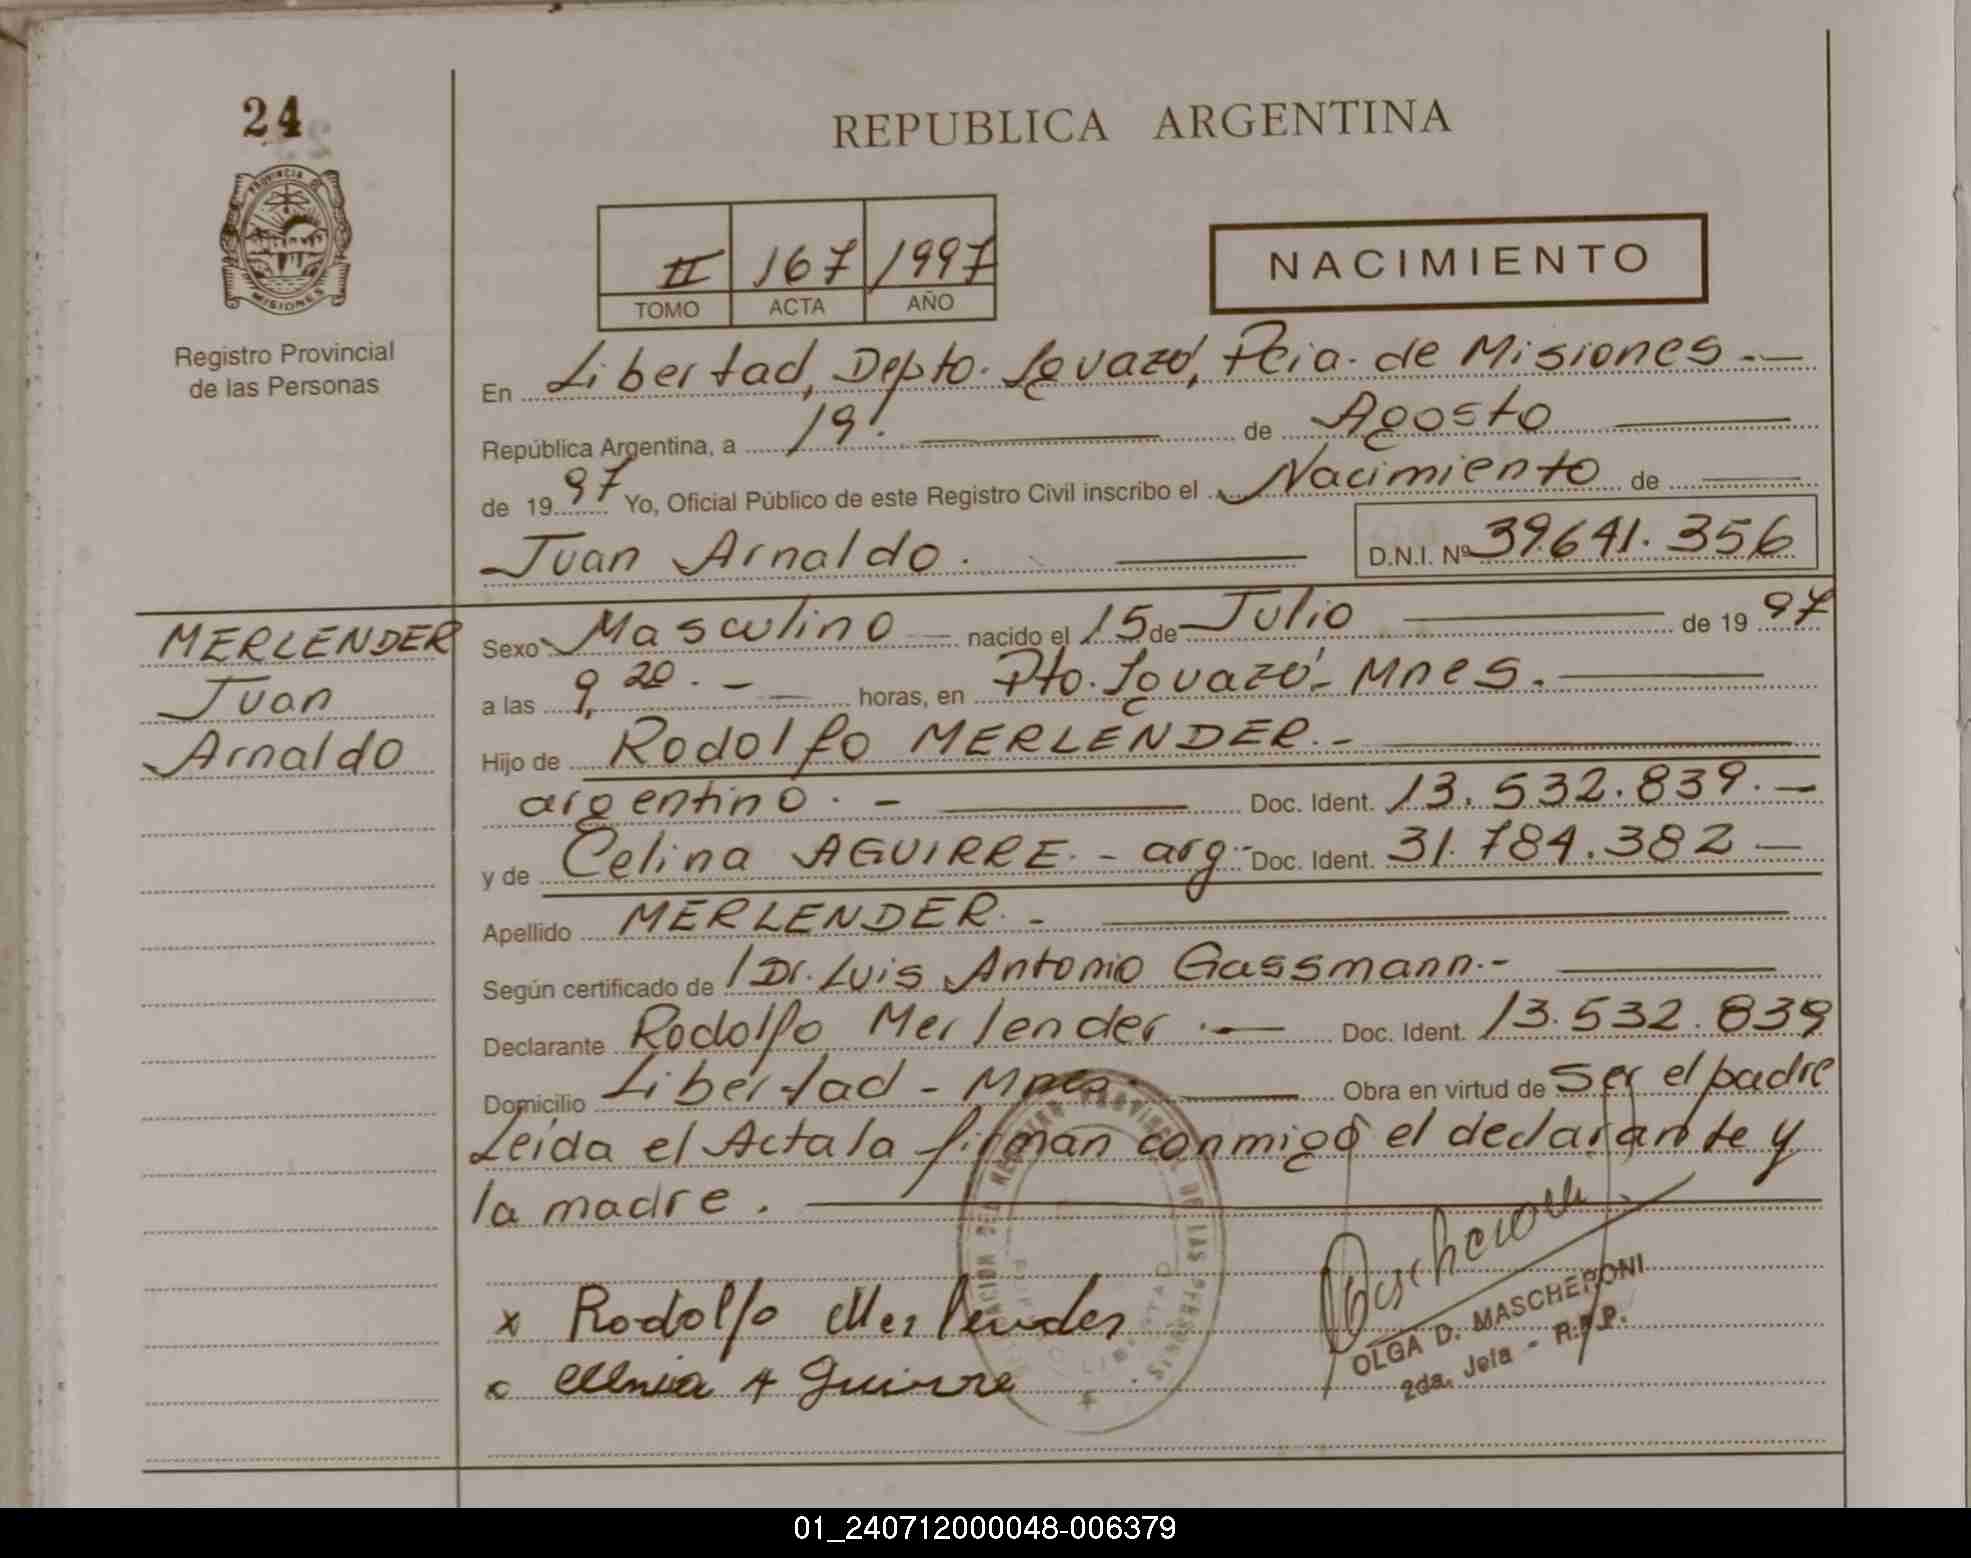 24
REPUBLICA ARGENTINA
PROVINCIA DE
MISIONES
Registro Provincial
de las Personas
II 167 1997
TOMO ACTA AÑO
NACIMIENTO
En Libertad, Depto. Iguazú, Pcia. de Misiones.—
República Argentina, a 19. — de Agosto —
de 1997 Yo, Oficial Público de este Registro Civil inscribo el Nacimiento de —
Juan Arnaldo. — D.N.I. Nº 39.641.356
MERLENDER
Juan
Arnaldo
Sexo Masculino — nacido el 15 de Julio — de 1997
a las 9,20.- — horas, en Pto. Iguazú - Mnes. —
Hijo de Rodolfo MERLENDER.- —
argentino.- — Doc. Ident. 13.532.839.—
y de Celina AGUIRRE.- arg.- Doc. Ident. 31.784.382 —
Apellido MERLENDER.- —
Según certificado de / Dr. Luis Antonio Gassmann.- —
Declarante Rodolfo Merlender.— Doc. Ident. 13.532.839
Domicilio Libertad - Mnes. — Obra en virtud de Ser el padre
Leída el Acta la firman conmigo el declarante y
la madre. —
x Rodolfo Merlender
Aguirre
OLGA D. MASCHERONI
2da. Jefa - R.P.P.
LIBERTAD
01_240712000048-006379